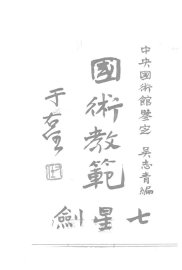 中央國術館鑒定 吳志青編
國術教範
七星劍
于右任